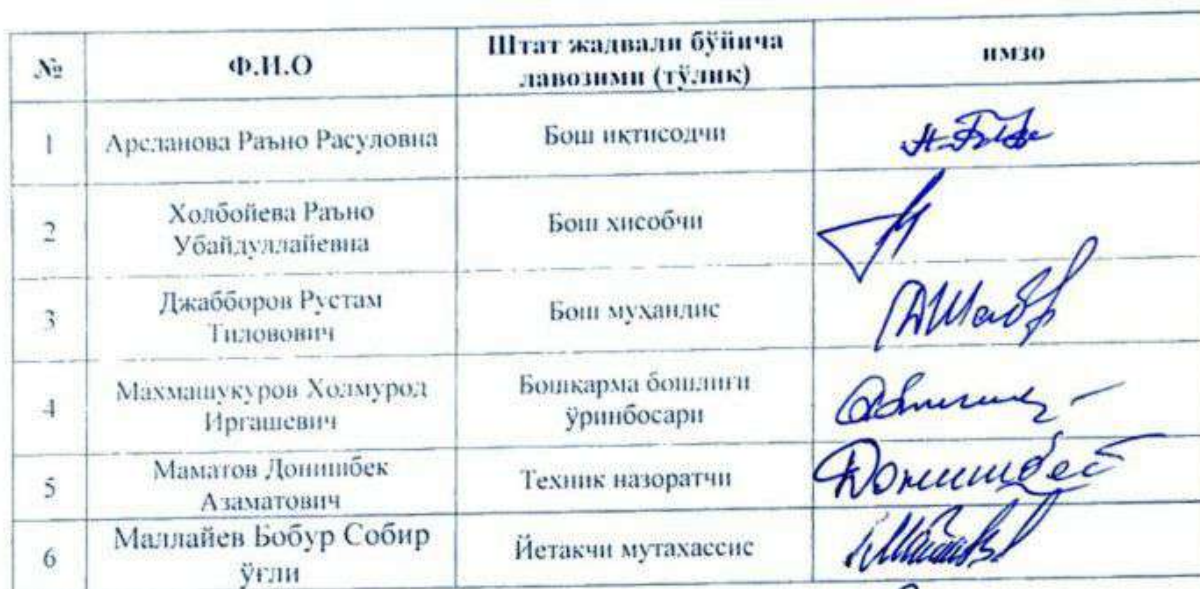 № Ф.И.О Штат жадвали бўйича лавозими (тўлиқ) имзо
1 Арсланова Раъно Расуловна Бош иқтисодчи
2 Холбойева Раъно Убайдуллайевна Бош хисобчи
3 Джабборов Рустам Тиловович Бош мухандис
4 Махмашукуров Холмурод Иргашевич Бошкарма бошлиғи ўринбосари
5 Маматов Донишбек Азаматович Техник назоратчи Донишбек
6 Маллайев Бобур Собир ўғли Йетакчи мутахассис